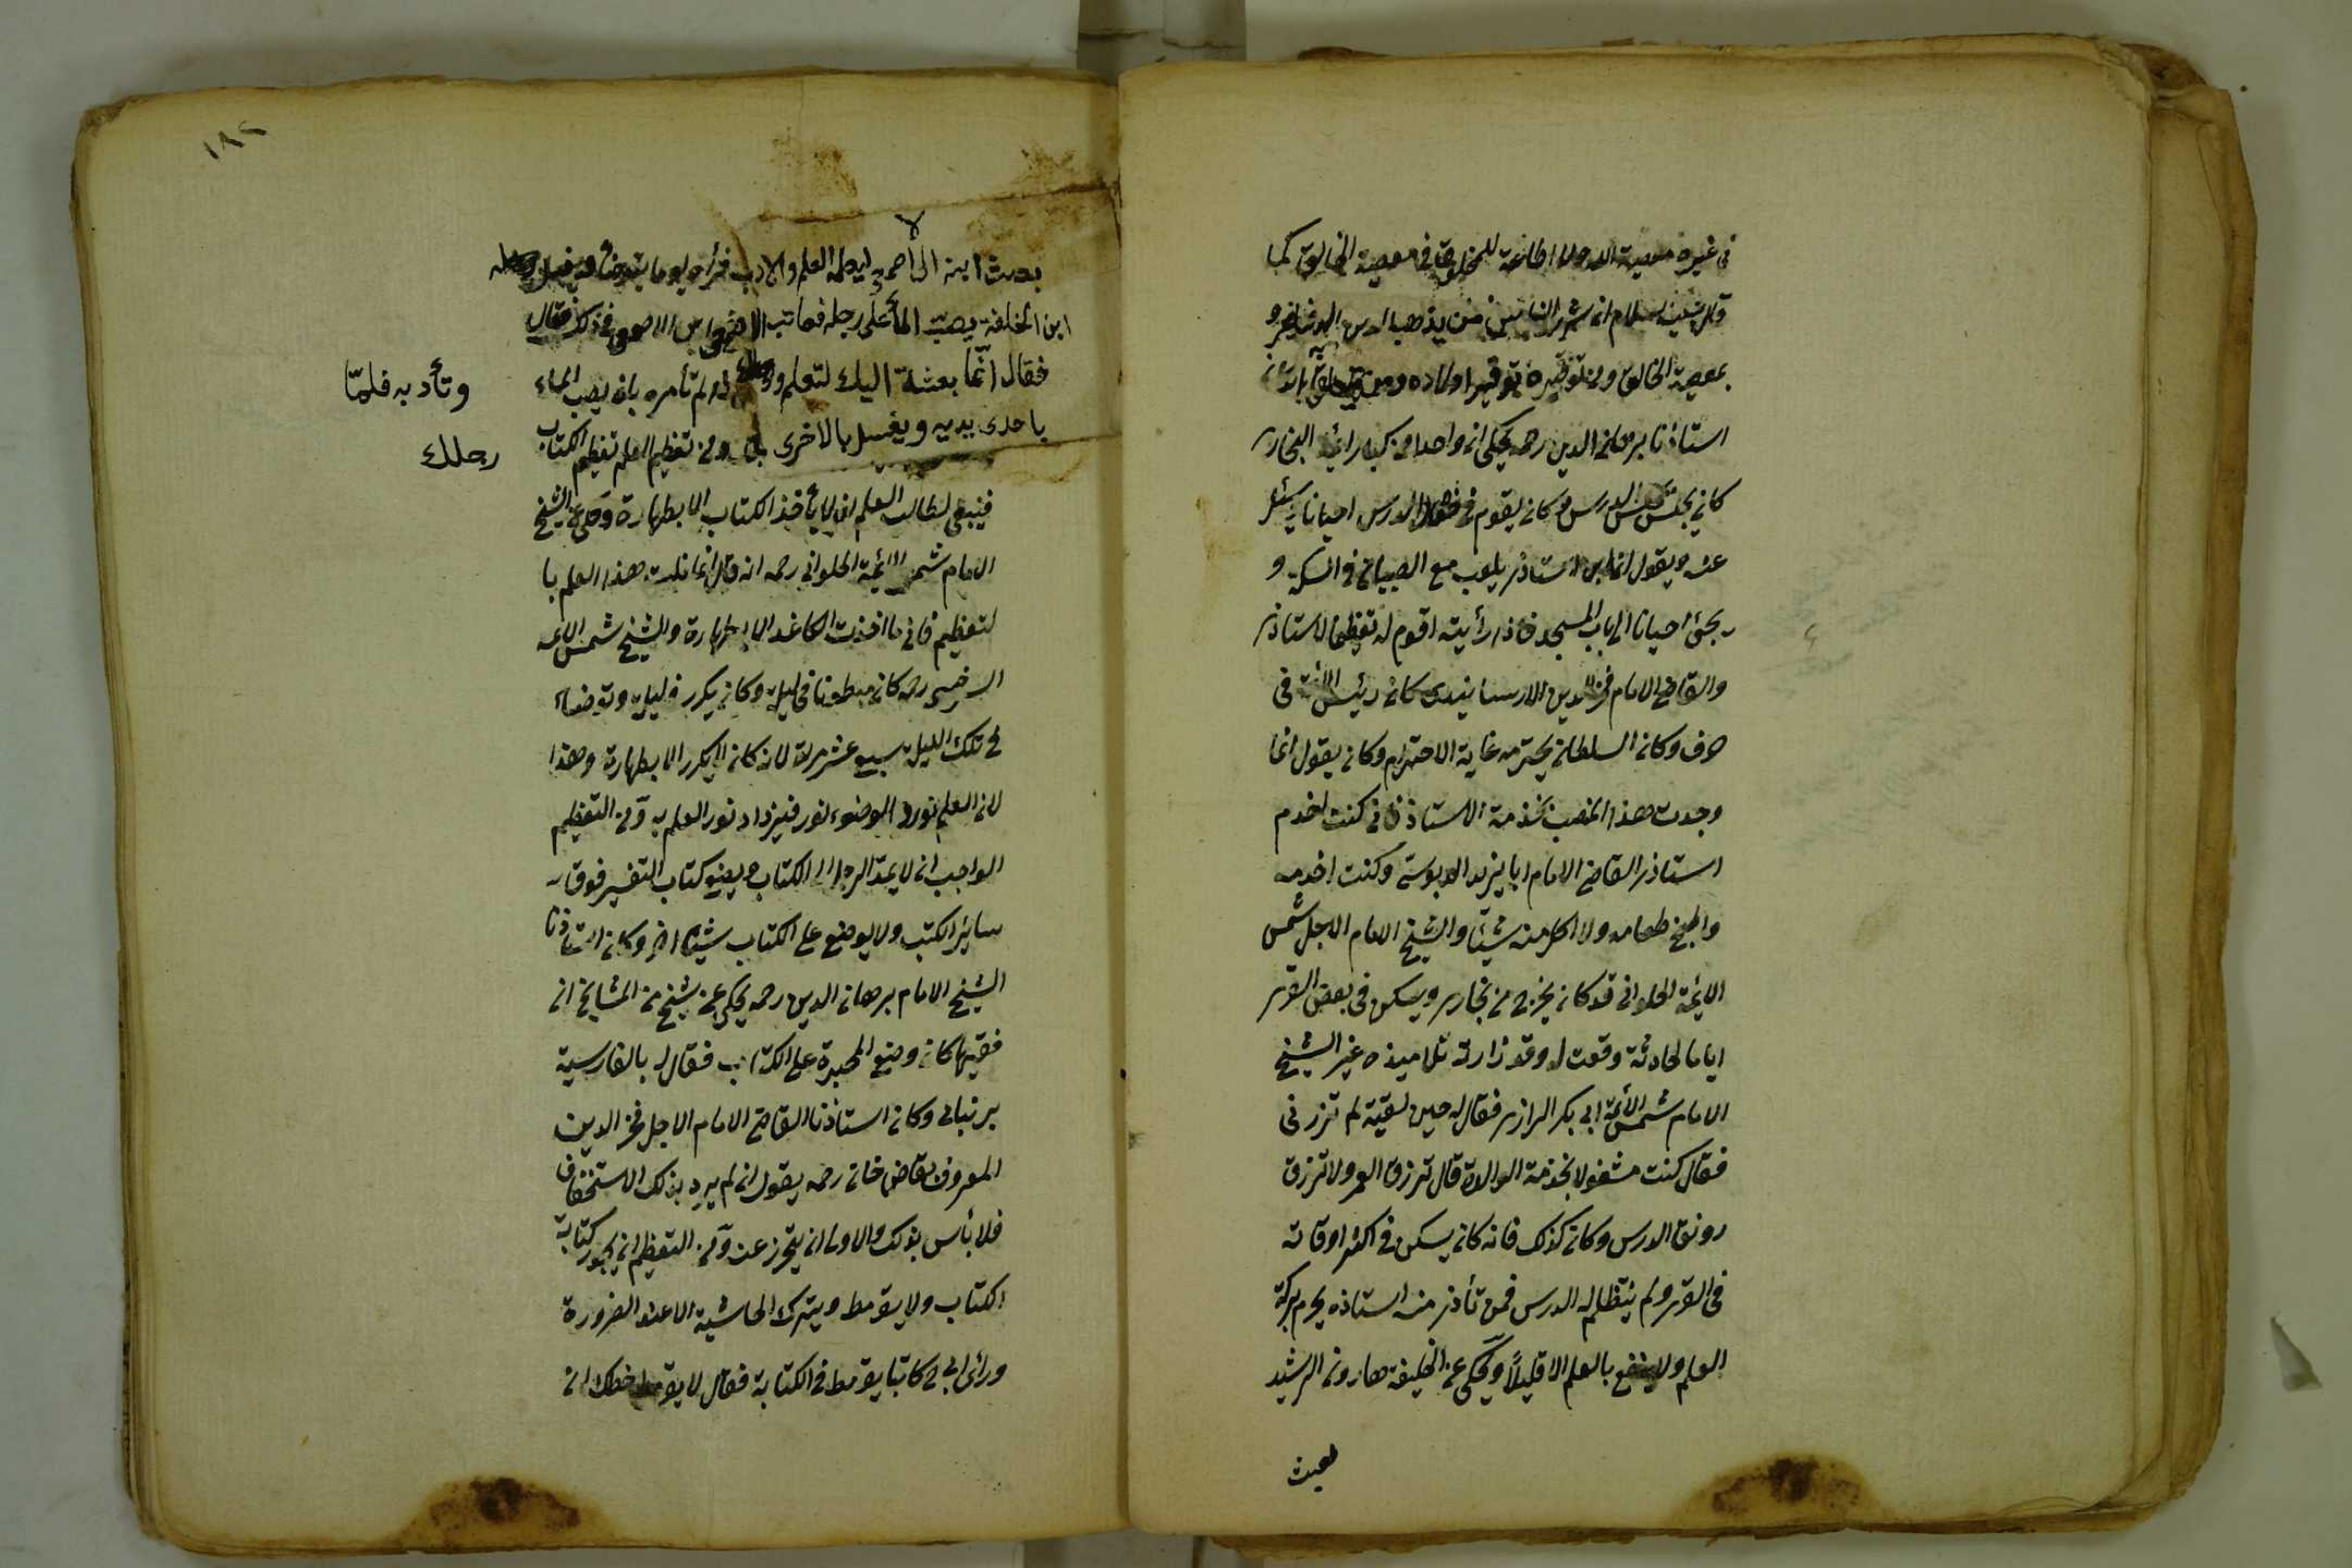 في غيره معصية الله ولا اطاعة للمخلوق في معصية الخالق كما
قال عليه السلام ان شر الناس من يذهب الدين لدنيا غيره
بمعصية الخالق ومن توقيره توقير اولاده ومن يتعلق به كان
استاذنا برهان الدين رحمه يحكى ان واحدا من كبار ائمة البخاري
كان يجلس مجلس الدرس وكان يقوم في خلال الدرس احيانا
عنه ويقول ان ابن استاذي يلعب مع الصبيان في السكة و
يجئ احيانا الى باب المسجد فاذا رأيته اقوم له تعظيما لاستاذي
والقاضي الامام فخر الدين الارسابندى كان رئيس الأئمة في
مرف وكان السلطان يحترمه غاية الاحترام وكان يقول انما
وجدت هذا المنصب بخذمة الاستاذ فاني كنت اخدم
استاذى القاضي الامام ابا يزيد الدبوسي وكنت اخدمه
واطبخ طعامه ولا اكل منه شيئا والشيخ الامام الاجل شمس
الائمة الحلواني قد كان يخرج من بخارى ويسكن في بعض القرى
اياما لحادثة وقعت له وقد زارته تلاميذه غير الشيخ
الامام شمس الأئمة ابي بكر الرازى فقال له حين لقيه لم تزرني
فقال كنت مشغولا بخذمة الوالدة قال ترزق العمر ولا ترزق
رونق الدرس وكان كذلك فانه كان يسكن في اكثر اوقاته
في القرى ولم ينتظم له الدرس فمن تأذى منه استاذه يحرم بركة
العلم ولا ينتفع بالعلم الا قليلاً وحكى عن الخليفة هارون الرشيد
بعث
١٨٢
لا
بعث ابنه الى اصمعي ليعلمه العلم والادب فرأه يوما يتوضأ ويغسل رجله
ابن الخليفة يصب الماء على رجله فعاتب الاصمعي في ذلك فقال
فقال انّما بعثته اليك لتعلم لم تأمره بان يصب الماء
وتأدبه فلمّا
باحدى يديه ويغسل بالاخرى ومن تعظيم العلم تعظيم الكتاب
رجلك
فينبغي لطالب العلم ان لا يأخذ الكتاب الا بطهارة وحكى عن الشيخ
الامام شمس الائمة الحلواني رحمه انه قال انما نلت هذا العلم با
لتعظيم فاني ما اخذت الكاغد الا بطهارة والشيخ شمس الائمه
السرخسي رحمه كان مبطونا في ليلة وكان يكرر في ليلة وتوضأ
في تلك الليلة سبع عشر مرة لانه كان لا يكرر الا بطهارة وهذا
لان العلم نور والوضوء نور فيزداد نور العلم به ومن التعظيم
الواجب ان لا يمد الرجل الى الكتاب ويضع كتاب التفسير فوق
سائر الكتب ولا يوضع على الكتاب شيئا اخر وكان استاذنا
الشيخ الامام برهان الدين رحمه يحكى عن شيخ من المشايخ ان
فقيها كان وضع المحبرة على الكتاب فقال له بالفارسية
بر نيابي وكان استاذنا القاضي الامام الاجل فخر الدين
المعروف بقاضي خان رحمه يقول ان لم يرد بذلك الاستخفاف
فلا بأس بذلك والاولى ان يتحرز عنه ومن التعظيم ان يجود كتابة
الكتاب ولا يقرمط ويترك الحاشية الا عند الضرورة
ورأى ابي ح كاتبا يقرمط في الكتابة فقال لا يقرمط خطك ان